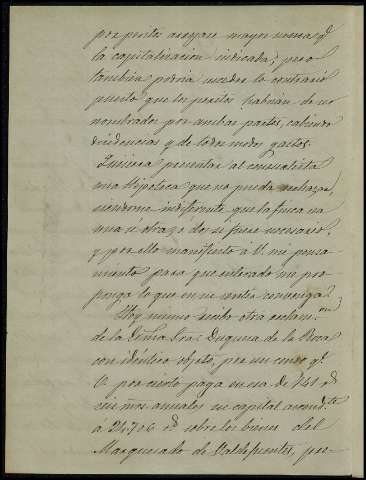 por peritos arrojase mayor suma q.
la capitalizacion indicada; pero
tambien podria suceder lo contrario
puesto que los peritos habrian de ser
nombrados por ambas partes, cabiendo
disidencias y de todos modos gastos.
Quisiera presentar al censualista
una Hipoteca que no pueda rechazar,
siendome indiferente que la finca sea
una ú otra, ó dos si fuere necesario,
y por ello manifiesto á V. mi pensa-
miento para que enterado me pro-
ponga lo que en su sentir convenga.
Hoy mismo recibo otra reclam.on
de la Excma. Sra. Duquesa de la Roca
con identico objeto, por un censo q.
V. por cuenta paga en esa de 741 r.s
mrs. anuales su capital
á 24.706 r.s sobre los bienes del
Marquesado de Valdefuentes, per-